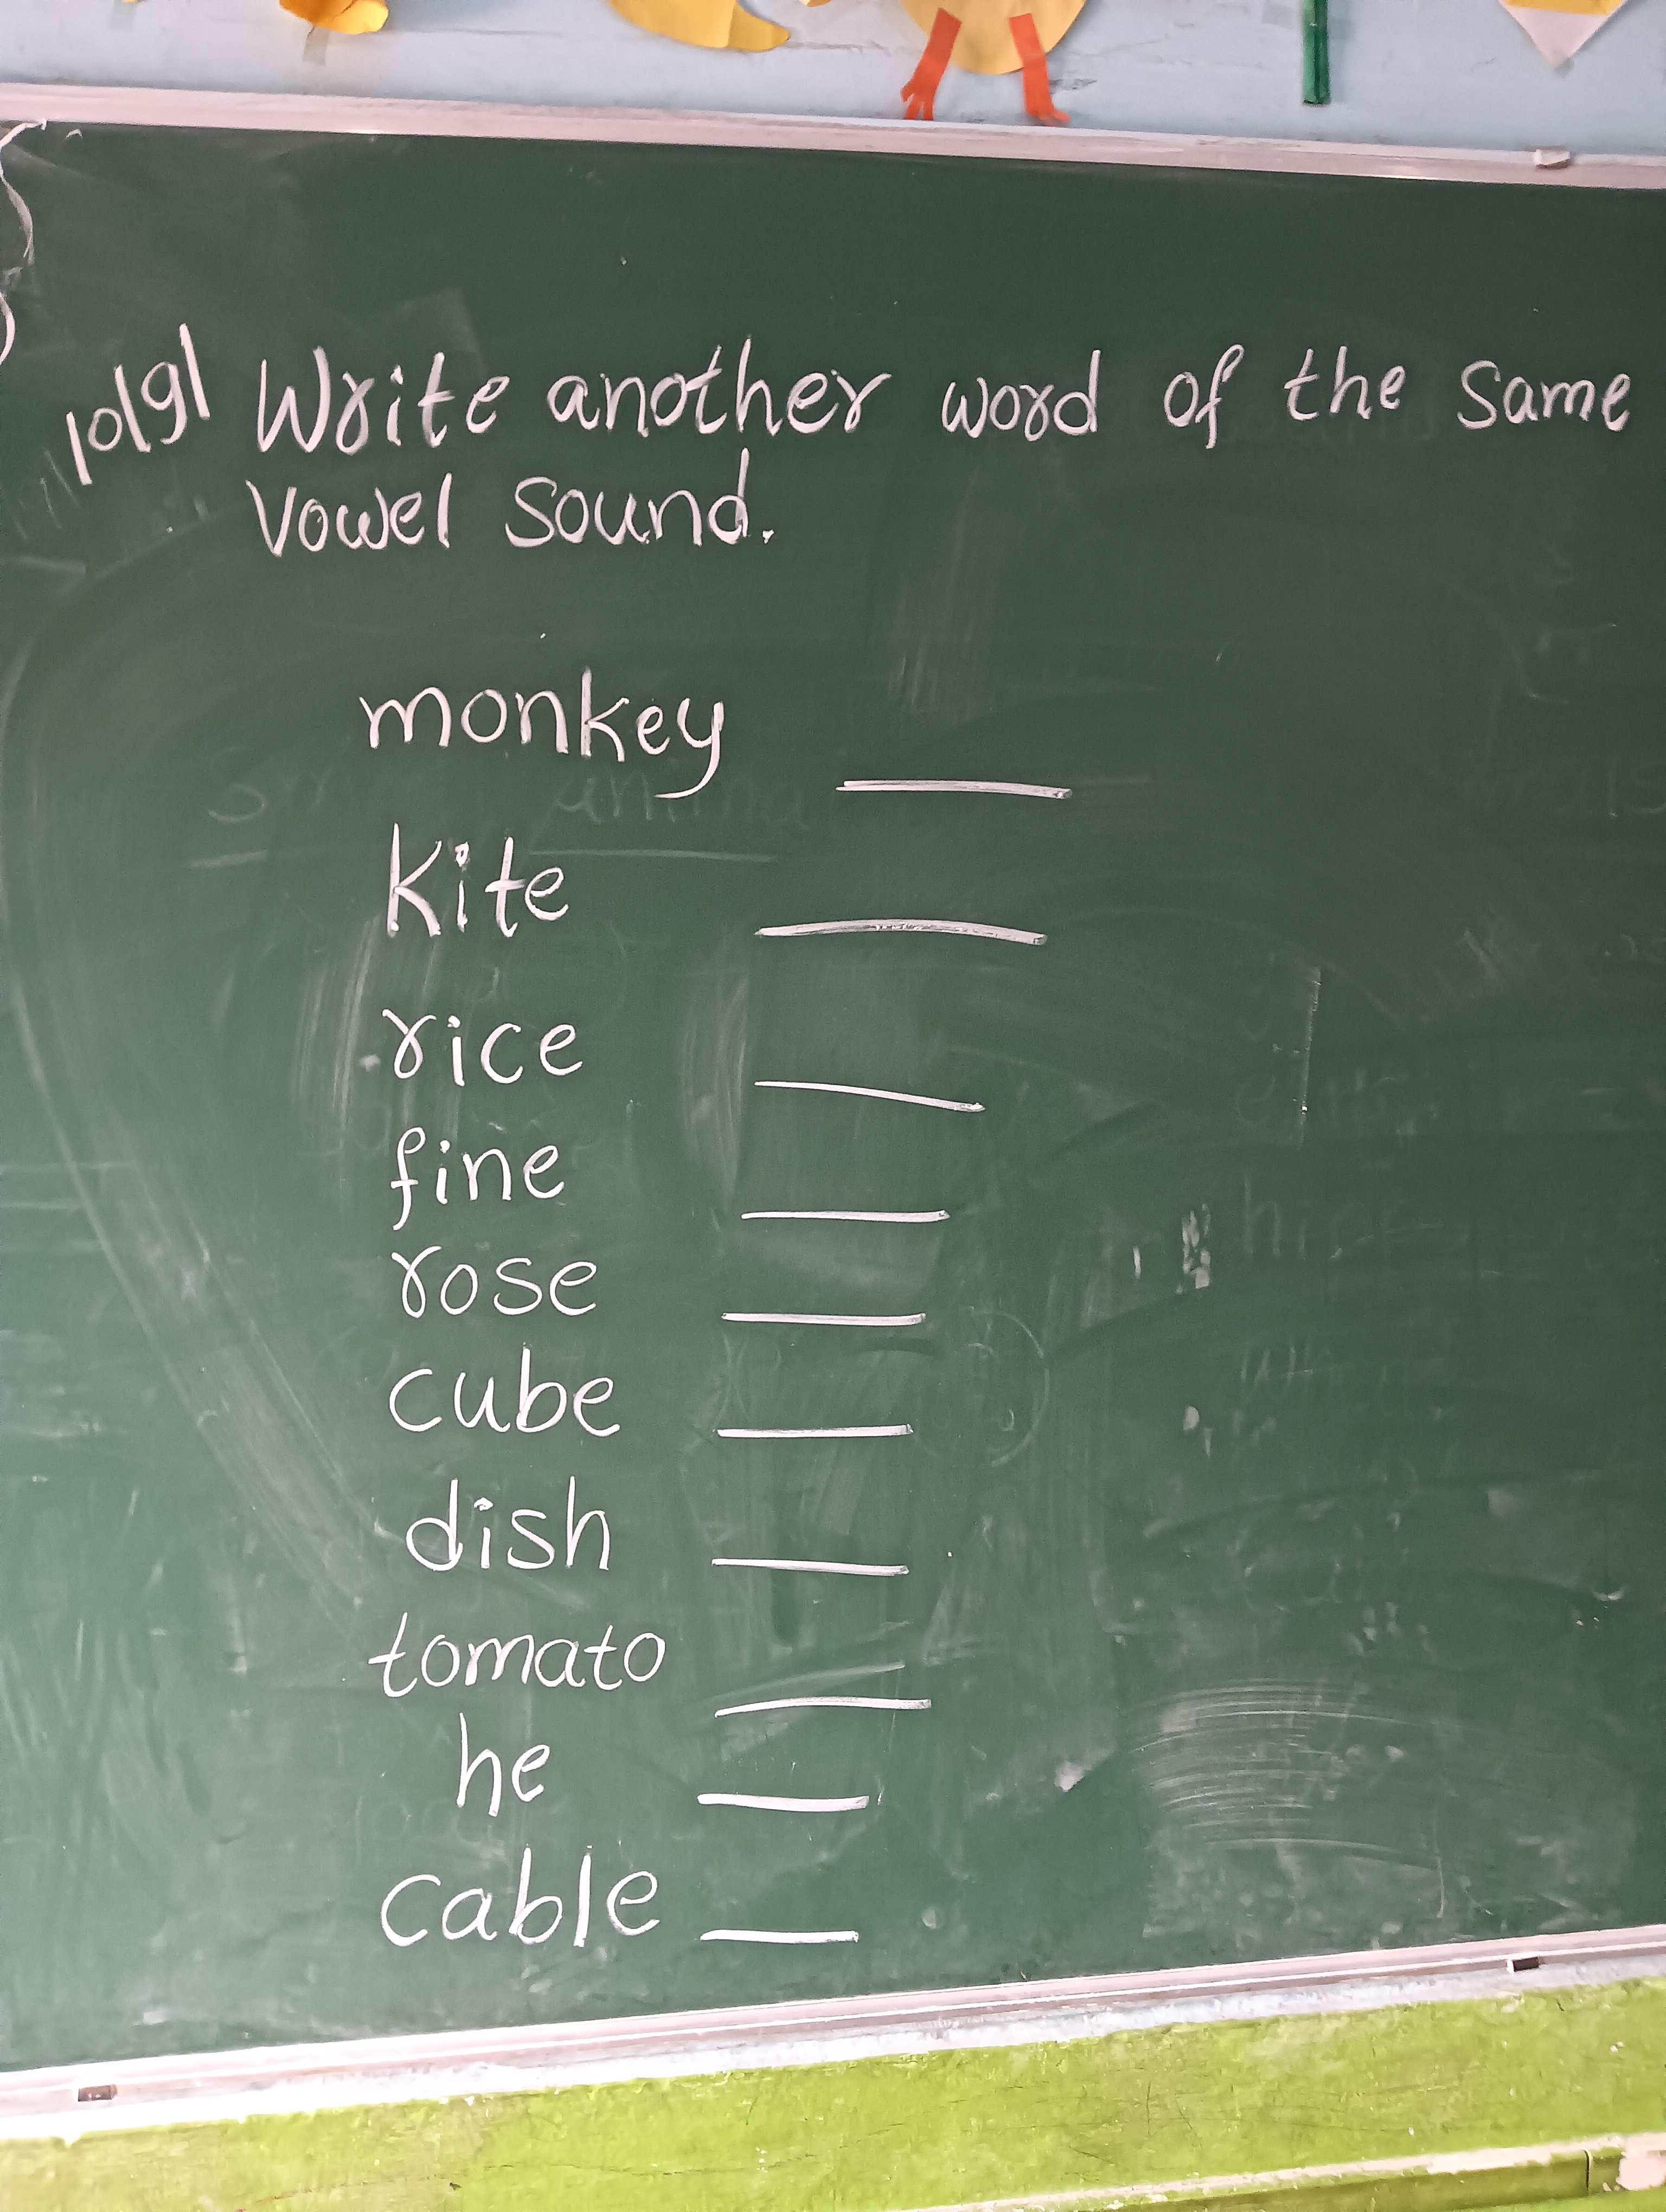 10/9/ Write another word of the same
vowel sound.
monkey ____
kite ____
rice ____
fine ____
rose ____
cube ____
dish ____
tomato ____
he ____
cable ____